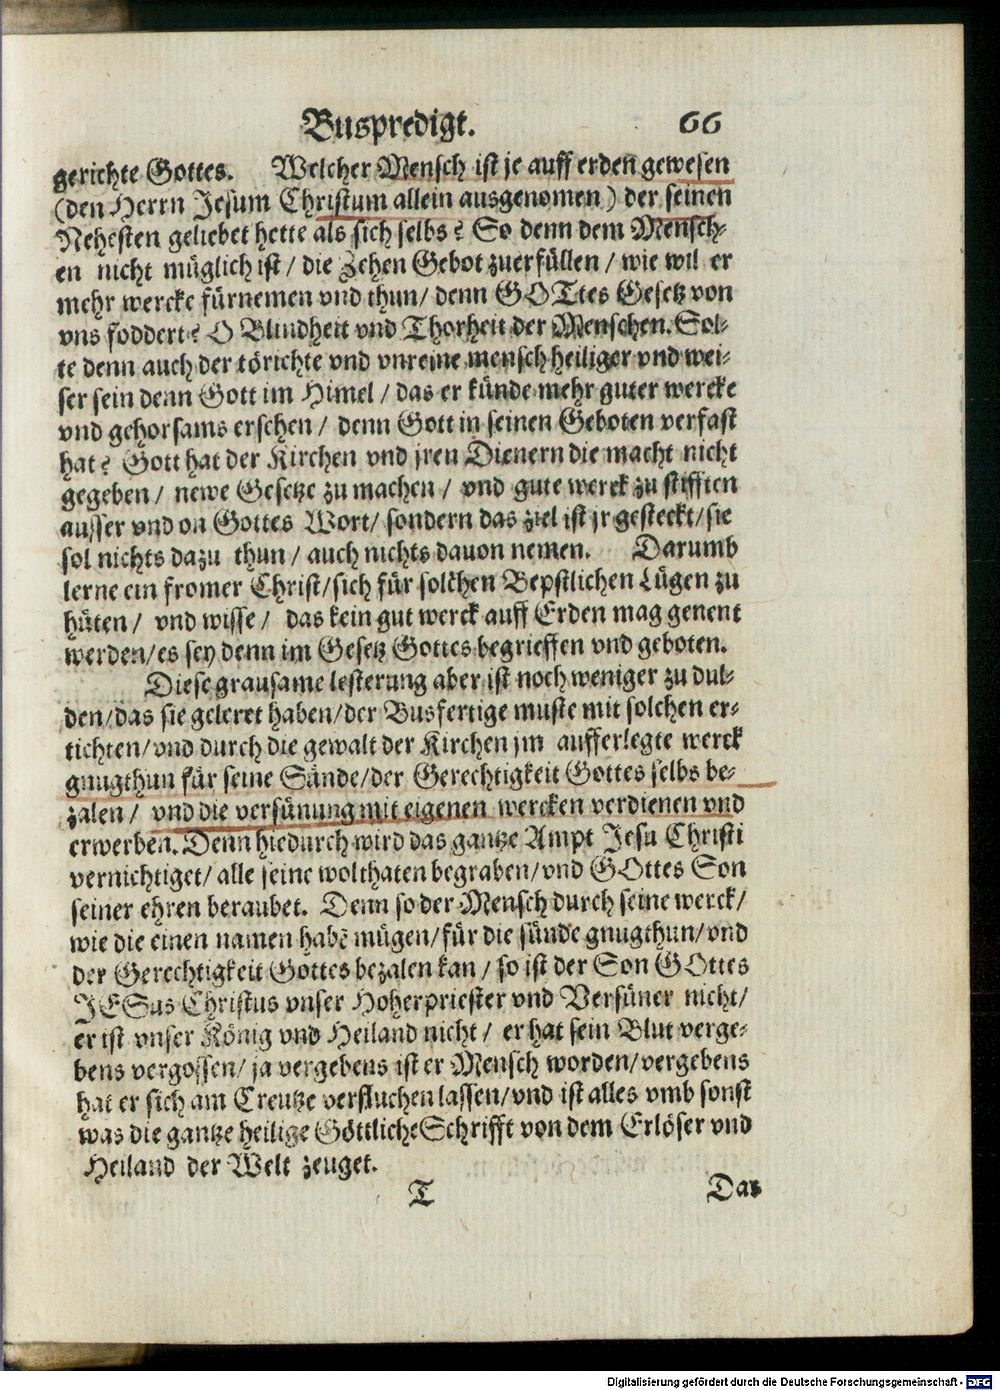 Buspredigt. 66
gerichte Gottes. Welcher Mensch ist je auff erden gewesen
(den Herrn Jesum Christum allein ausgenomen) der seinen
Nehesten geliebet hette als sich selbs? So denn dem Mensch-
en nicht müglich ist / die Zehen Gebot zuerfüllen / wie wil er
mehr wercke fürnemen vnd thun / denn GOTtes Gesetz von
vns foddert? O Blindheit vnd Thorheit der Menschen. Sol-
te denn auch der törichte vnd vnreine mensch heiliger vnd wei-
ser sein denn Gott im Himel / das er künde mehr guter wercke
vnd gehorsams ersehen / denn Gott in seinen Geboten verfast
hat? Gott hat der Kirchen vnd jren Dienern die macht nicht
gegeben / newe Gesetze zu machen / vnd gute werck zu stifften
ausser vnd on Gottes Wort / sondern das ziel ist jr gesteckt / sie
sol nichts dazu thun / auch nichts dauon nemen. Darumb
lerne ein fromer Christ / sich für solchen Bepstlichen Lügen zu
hüten / vnd wisse / das kein gut werck auff Erden mag genent
werden / es sey denn im Gesetz Gottes begrieffen vnd geboten.
Diese grausame lesterung aber ist noch weniger zu dul-
den / das sie geleret haben / der Busfertige muste mit solchen er-
tichten / vnd durch die gewalt der Kirchen jm aufferlegte werck
gnugthun für seine Sünde / der Gerechtigkeit Gottes selbs be-
zalen / vnd die versünung mit eigenen wercken verdienen vnd
erwerben. Denn hiedurch wird das gantze Ampt Jesu Christi
vernichtiget / alle seine wolthaten begraben / vnd GOttes Son
seiner ehren beraubet. Denn so der Mensch durch seine werck /
wie die einen namen habē mügen / für die sünde gnugthun / vnd
der Gerechtigkeit Gottes bezalen kan / so ist der Son GOttes
JESus Christus vnser Hoherpriester vnd Versüner nicht /
er ist vnser König vnd Heiland nicht / er hat sein Blut verge-
bens vergossen / ja vergebens ist er Mensch worden / vergebens
hat er sich am Creutze verfluchen lassen / vnd ist alles vmb sonst
was die gantze heilige Göttliche Schrifft von dem Erlöser vnd
Heiland der Welt zeuget.
T Das
Digitalisierung gefördert durch die Deutsche Forschungsgemeinschaft - DFG